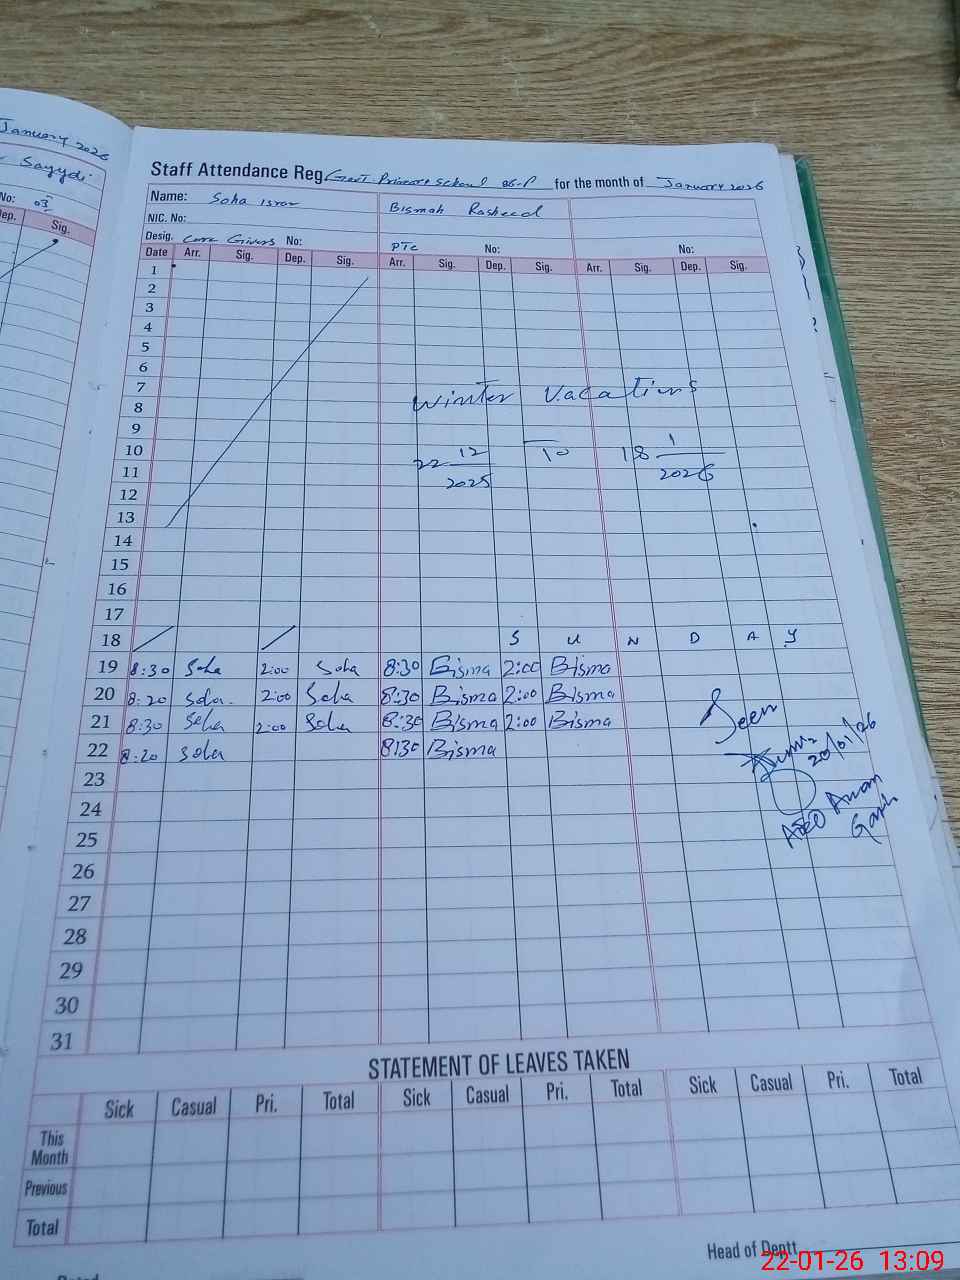 January 2026
Sayydi
No: 03
Dep. Sig.
Staff Attendance Reg Govt. Primary School for the month of January 2026
Name: Soha Israr Bismah Rasheed
NIC. No:
Desig. Care Givers No: PTC No: No:
Date Arr. Sig. Dep. Sig. Arr. Sig. Dep. Sig. Arr. Sig. Dep. Sig.
1
2
3
4
5
6
7 Winter Vacations
8
9
10 22 12 2025 To 18 1 2026
11
12
13
14
15
16
17
18 S U N D A Y
19 8:30 Soha 2:00 Soha 8:30 Bisma 2:00 Bisma
20 8:20 Soha 2:00 Soha 8:30 Bisma 2:00 Bisma
21 8:30 Soha 2:00 Soha 8:30 Bisma 2:00 Bisma
22 8:20 Soha 8:30 Bisma
Seen
20/01/26
23
24
25
26
27
28
29
30
31
STATEMENT OF LEAVES TAKEN
Sick Casual Pri. Total Sick Casual Pri. Total Sick Casual Pri. Total
This Month
Previous
Total
Head of Deptt
22-01-26 13:09